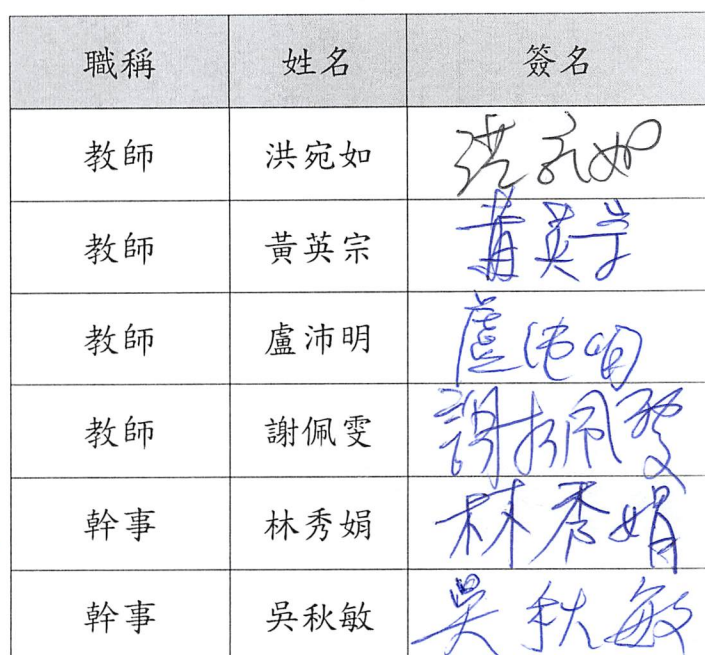 職稱 姓名 簽名
教師 洪宛如 洪宛如
教師 黃英宗 黃英宗
教師 盧沛明 盧沛明
教師 謝佩雯 謝佩雯
幹事 林秀娟 林秀娟
幹事 吳秋敏 吳秋敏